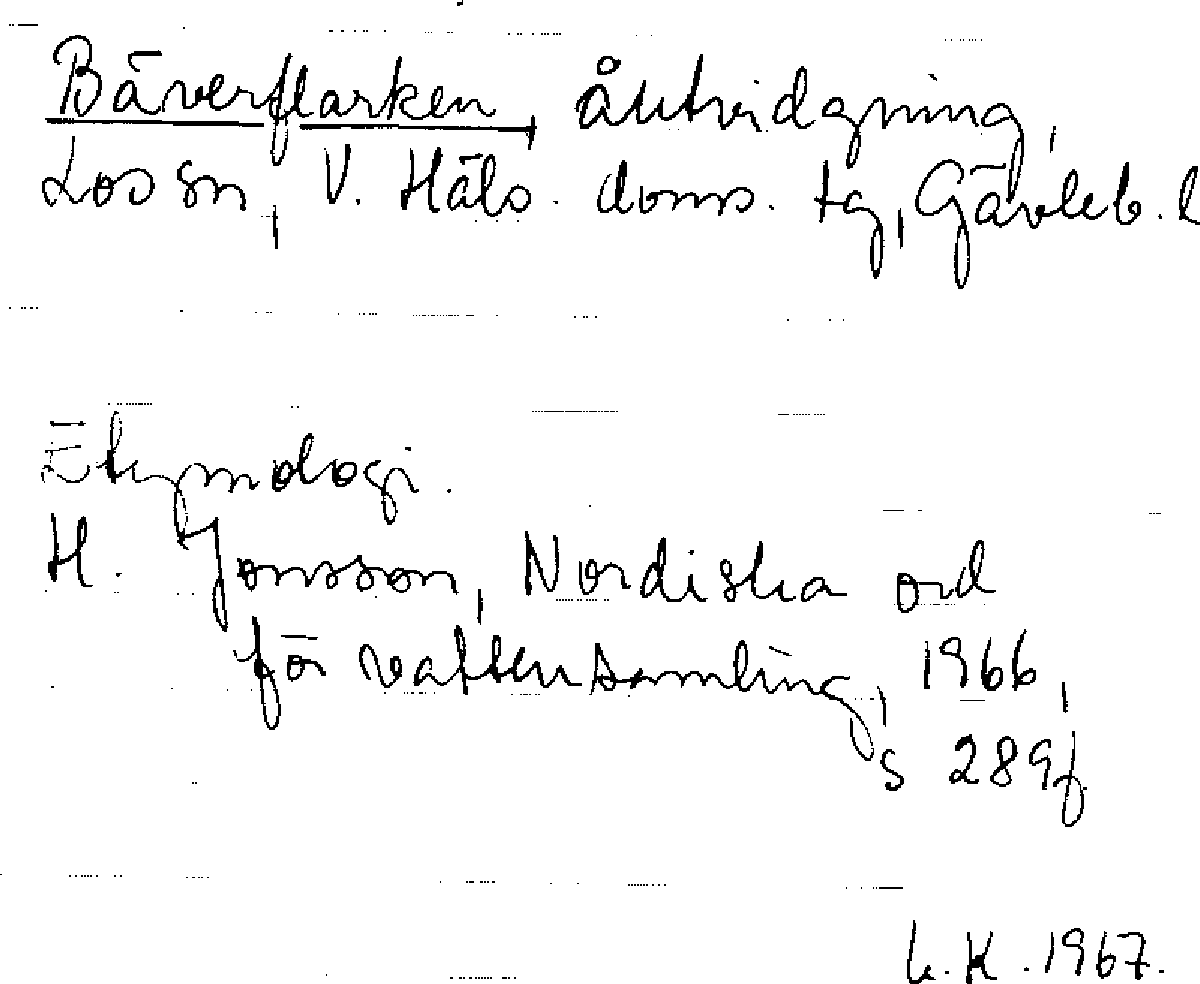 Bäverflarken, åutvidgning,
Los sn, V. Häls. doms. tg, Gävleb. l
Etymologi.
H. Jonsson, Nordiska ord
för vattensamling, 1966,
s 289f.
L.K. 1967.